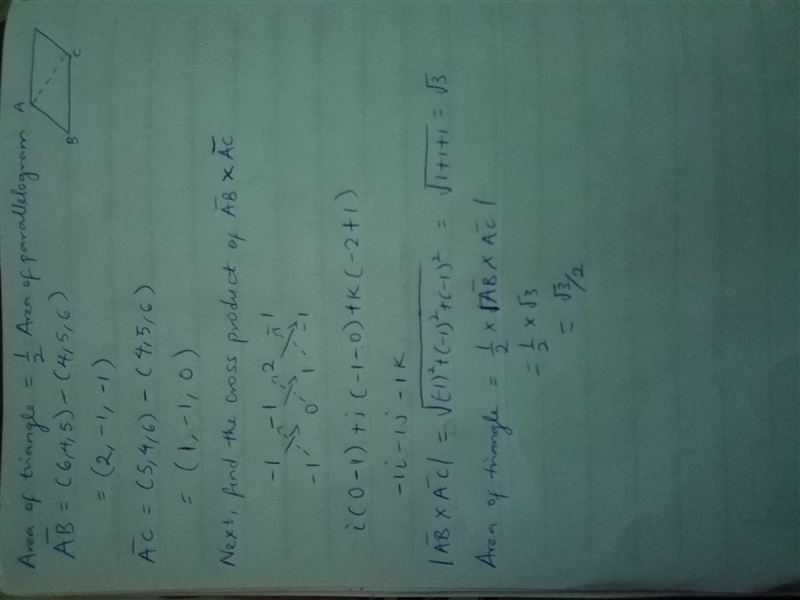 Area of triangle = 1/2 Area of parallelogram
A
B
C
A̅B̅ = (6,4,5) - (4,5,6)
= (2, -1, -1)
A̅C̅ = (5,4,6) - (4,5,6)
= (1, -1, 0)
Next, find the cross product of A̅B̅ × A̅C̅
-1 -1 2 -1
-1 0 1 -1
i(0-1) + j(-1-0) + K(-2+1)
-1i -1j -1K
|A̅B̅ × A̅C̅| = √(-1)²+(-1)²+(-1)² = √1+1+1 = √3
Area of triangle = 1/2 × |A̅B̅ × A̅C̅|
= 1/2 × √3
= √3/2